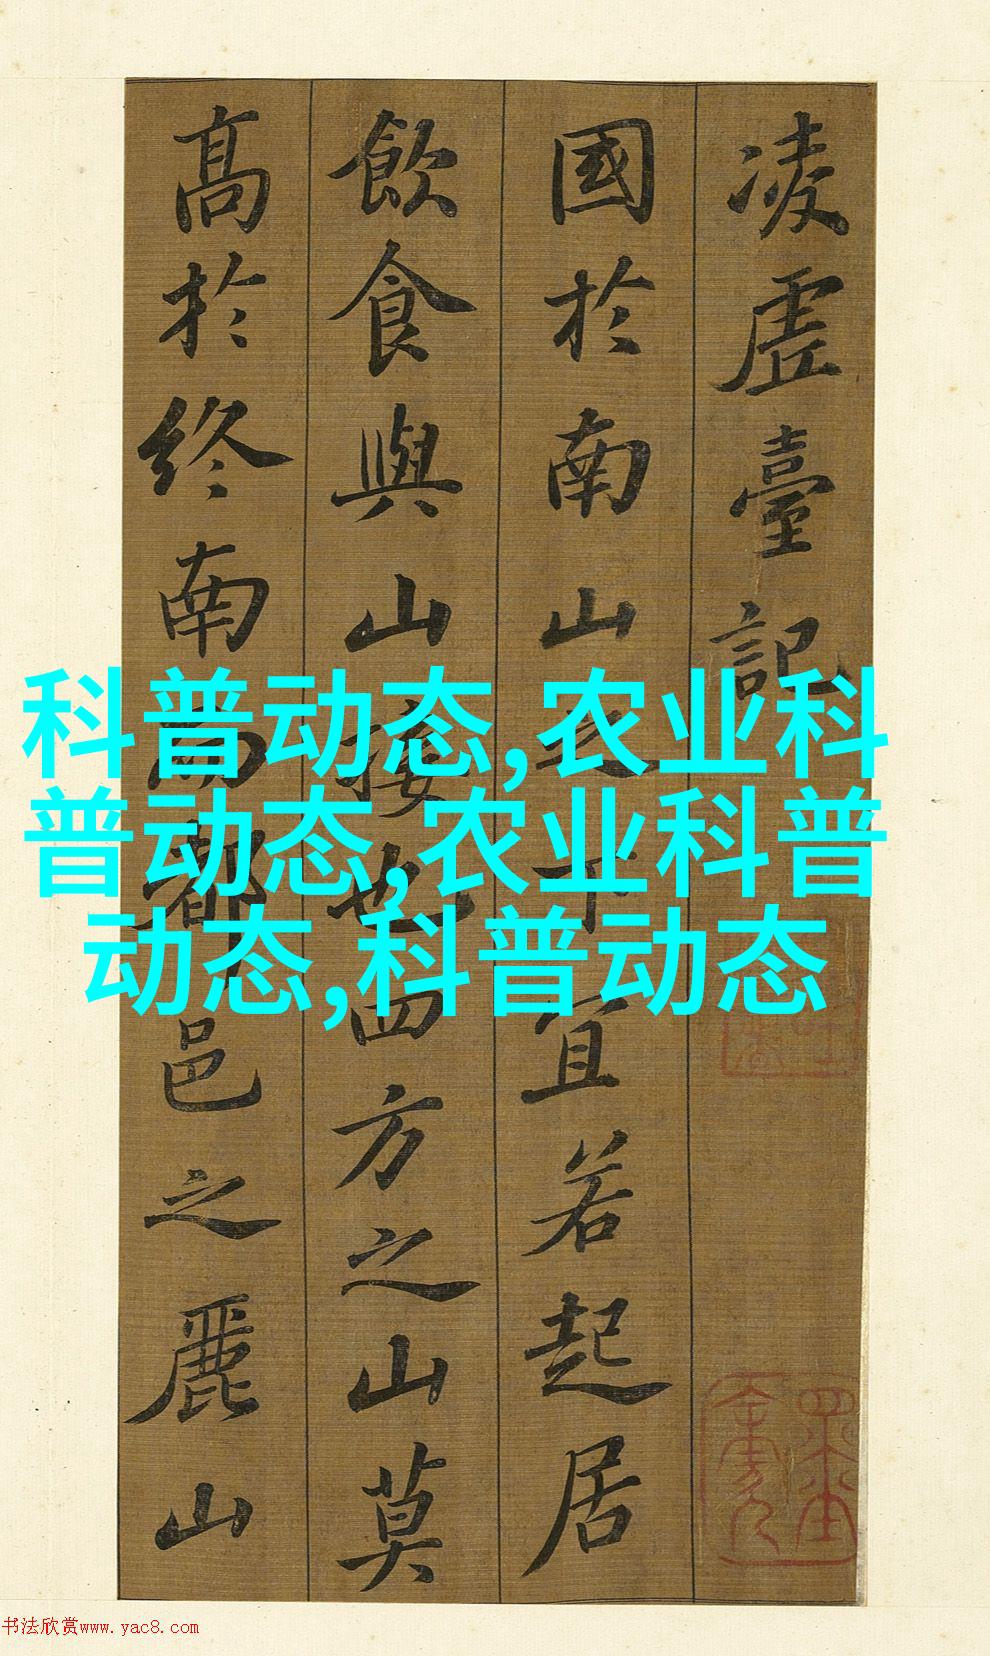 凌虛臺記
國於南山之下宜若起居
飲食與山接也四方之山莫
高於終南而都邑之麗山
科普动态,农业科
普动态,农业科普
动态,科普动态
书法欣赏www.yac8.com